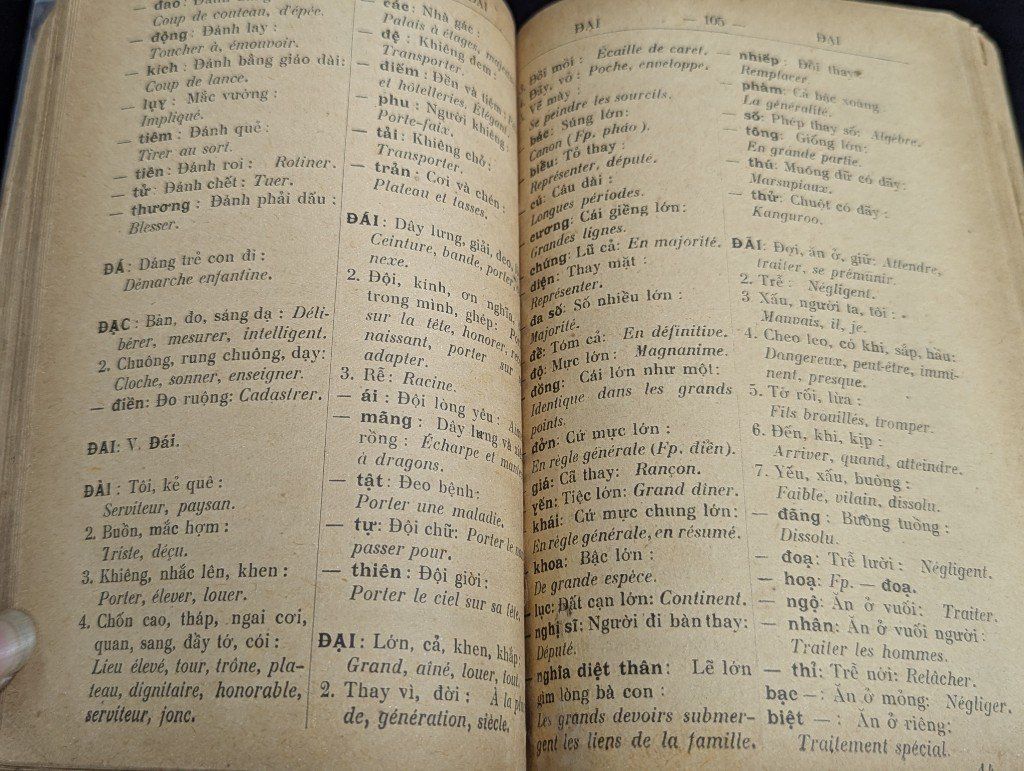 ĐẠI
Coup de couteau, d'épée.
— động: Đánh lay:
Toucher à, émouvoir.
— kích: Đánh bằng giáo dài:
Coup de lance.
— lụy: Mắc vướng:
Impliqué.
— tiêm: Đánh quẻ:
Tirer au sort.
— tiên: Đánh roi: Rotiner.
— tử: Đánh chết: Tuer.
— thương: Đánh phải dấu:
Blesser.
ĐÁ: Dáng trẻ con đi:
Démarche enfantine.
ĐẠC: Bàn, đo, sáng dạ: Déli-
bérer, mesurer, intelligent.
2. Chuông, rung chuông, dạy:
Cloche, sonner, enseigner.
— điền: Đo ruộng: Cadastrer.
ĐAI: V. Đái.
ĐÀI: Tôi, kẻ quê:
Serviteur, paysan.
2. Buồn, mắc hợm:
Triste, déçu.
3. Khiêng, nhắc lên, khen:
Porter, élever, louer.
4. Chốn cao, tháp, ngai cơi,
quan, sang, đầy tớ, cói:
Lieu élevé, tour, trône, pla-
teau, dignitaire, honorable,
serviteur, jonc.
— các: Nhà gác:
Palais à étages,
— đệ: Khiêng đem:
Transporter.
— điếm: Đền và tiệm:
et hôtelleries. Elégant.
— phu: Người khiêng:
Porte-faix.
— tải: Khiêng chở:
Transporter.
— trản: Cơi và chén:
Plateau et tasses.
ĐÁI: Dây lưng, giải, đeo,
Ceinture, bande, porter,
nexe.
2. Đội, kính, ơn nghĩa,
trong mình, ghép:
sur la tête, honorer,
naissant, porter sur
adapter.
3. Rễ: Racine.
— ái: Đội lòng yêu:
— mãng: Dây lưng và
rồng: Écharpe et
à dragons.
— tật: Đeo bệnh:
Porter une maladie.
— tự: Đội chữ: Porter le
passer pour.
— thiên: Đội giời:
Porter le ciel sur sa tête.
ĐẠI: Lớn, cả, khen, khắp:
Grand, aîné, louer, tout.
2. Thay vì, đời: À la
de, génération, siècle.
ĐẠI — 105 — ĐẠI
Đồi mồi: Écaille de caret.
Đẫy, vỏ: Poche, enveloppe.
Vẽ mày:
Se peindre les sourcils.
bác: Súng lớn:
Canon (Fp. pháo).
biểu: Tỏ thay:
Représenter, député.
cú: Câu dài:
Longues périodes.
cương: Cái giềng lớn:
Grandes lignes.
chứng: Lũ cả: En majorité.
diện: Thay mặt:
Représenter.
đa số: Số nhiều lớn:
Majorité.
đề: Tóm cả: En définitive.
độ: Mực lớn: Magnanime.
đồng: Cái lớn như một:
Identique dans les grands
points.
đởn: Cứ mực lớn:
En règle générale (Fp. điển).
giá: Cả thay: Rançon.
yến: Tiệc lớn: Grand dîner.
khái: Cứ mực chung lớn:
En règle générale, en résumé.
khoa: Bậc lớn:
De grande espèce.
— lục: Đất cạn lớn: Continent.
— nghị sĩ: Người đi bàn thay:
Député.
— nghĩa diệt thân: Lẽ lớn
gìm lòng bà con:
Les grands devoirs submer-
gent les liens de la famille.
— nhiếp: Đổi thay
Remplacer.
— phàm: Cả bậc xoàng
La généralité.
— số: Phép thay số: Algèbre.
— tông: Giống lớn:
En grande partie.
— thú: Muông dữ có đẫy:
Marsupiaux.
— thử: Chuột có đẫy:
Kanguroo.
ĐÃI: Đợi, ăn ở, giữ: Attendre,
traiter, se prémunir.
2. Trễ: Négligent.
3. Xấu, người ta, tôi:
Mauvais, il, je.
4. Cheo leo, có khi, sắp, hầu:
Dangereux, peut-être, immi-
nent, presque.
5. Tơ rối, lừa:
Fils brouillés, tromper.
6. Đến, khi, kịp:
Arriver, quand, atteindre.
7. Yếu, xấu, buông:
Faible, vilain, dissolu.
— đãng: Buông tuồng:
Dissolu.
— đoạ: Trễ lười: Négligent.
— hoạ: Fp. — đoạ.
— ngộ: Ăn ở vuối: Traiter.
— nhân: Ăn ở vuối người:
Traiter les hommes.
— thỉ: Trễ nới: Relâcher.
bạc —: Ăn ở mỏng: Négliger.
biệt —: Ăn ở riêng:
Traitement spécial.